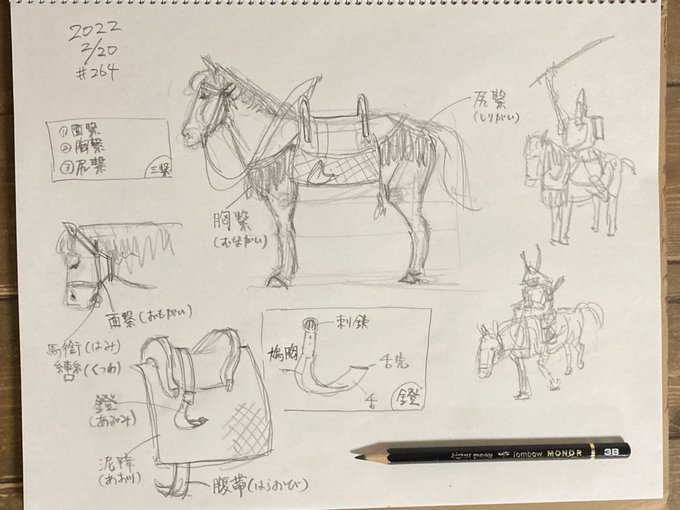 2022
2/20
#264
①面繋
②胸繋
③尻繋
三繋
尻繋
(しりがい)
胸繋
(むながい)
面繋(おもがい)
馬銜(はみ)
轡(くつわ)
鐙
(あぶみ)
泥障
(あおり)
腹帯(はらおび)
刺鉄
鳩胸
舌先
舌
鐙
Tombow MONO R 3B